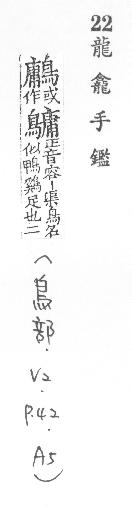 22龍龕手鑑
鷛或作鷛正音容丨渠鳥名似鴨鷄足也二
(鳥部.V2.P.42.A5)